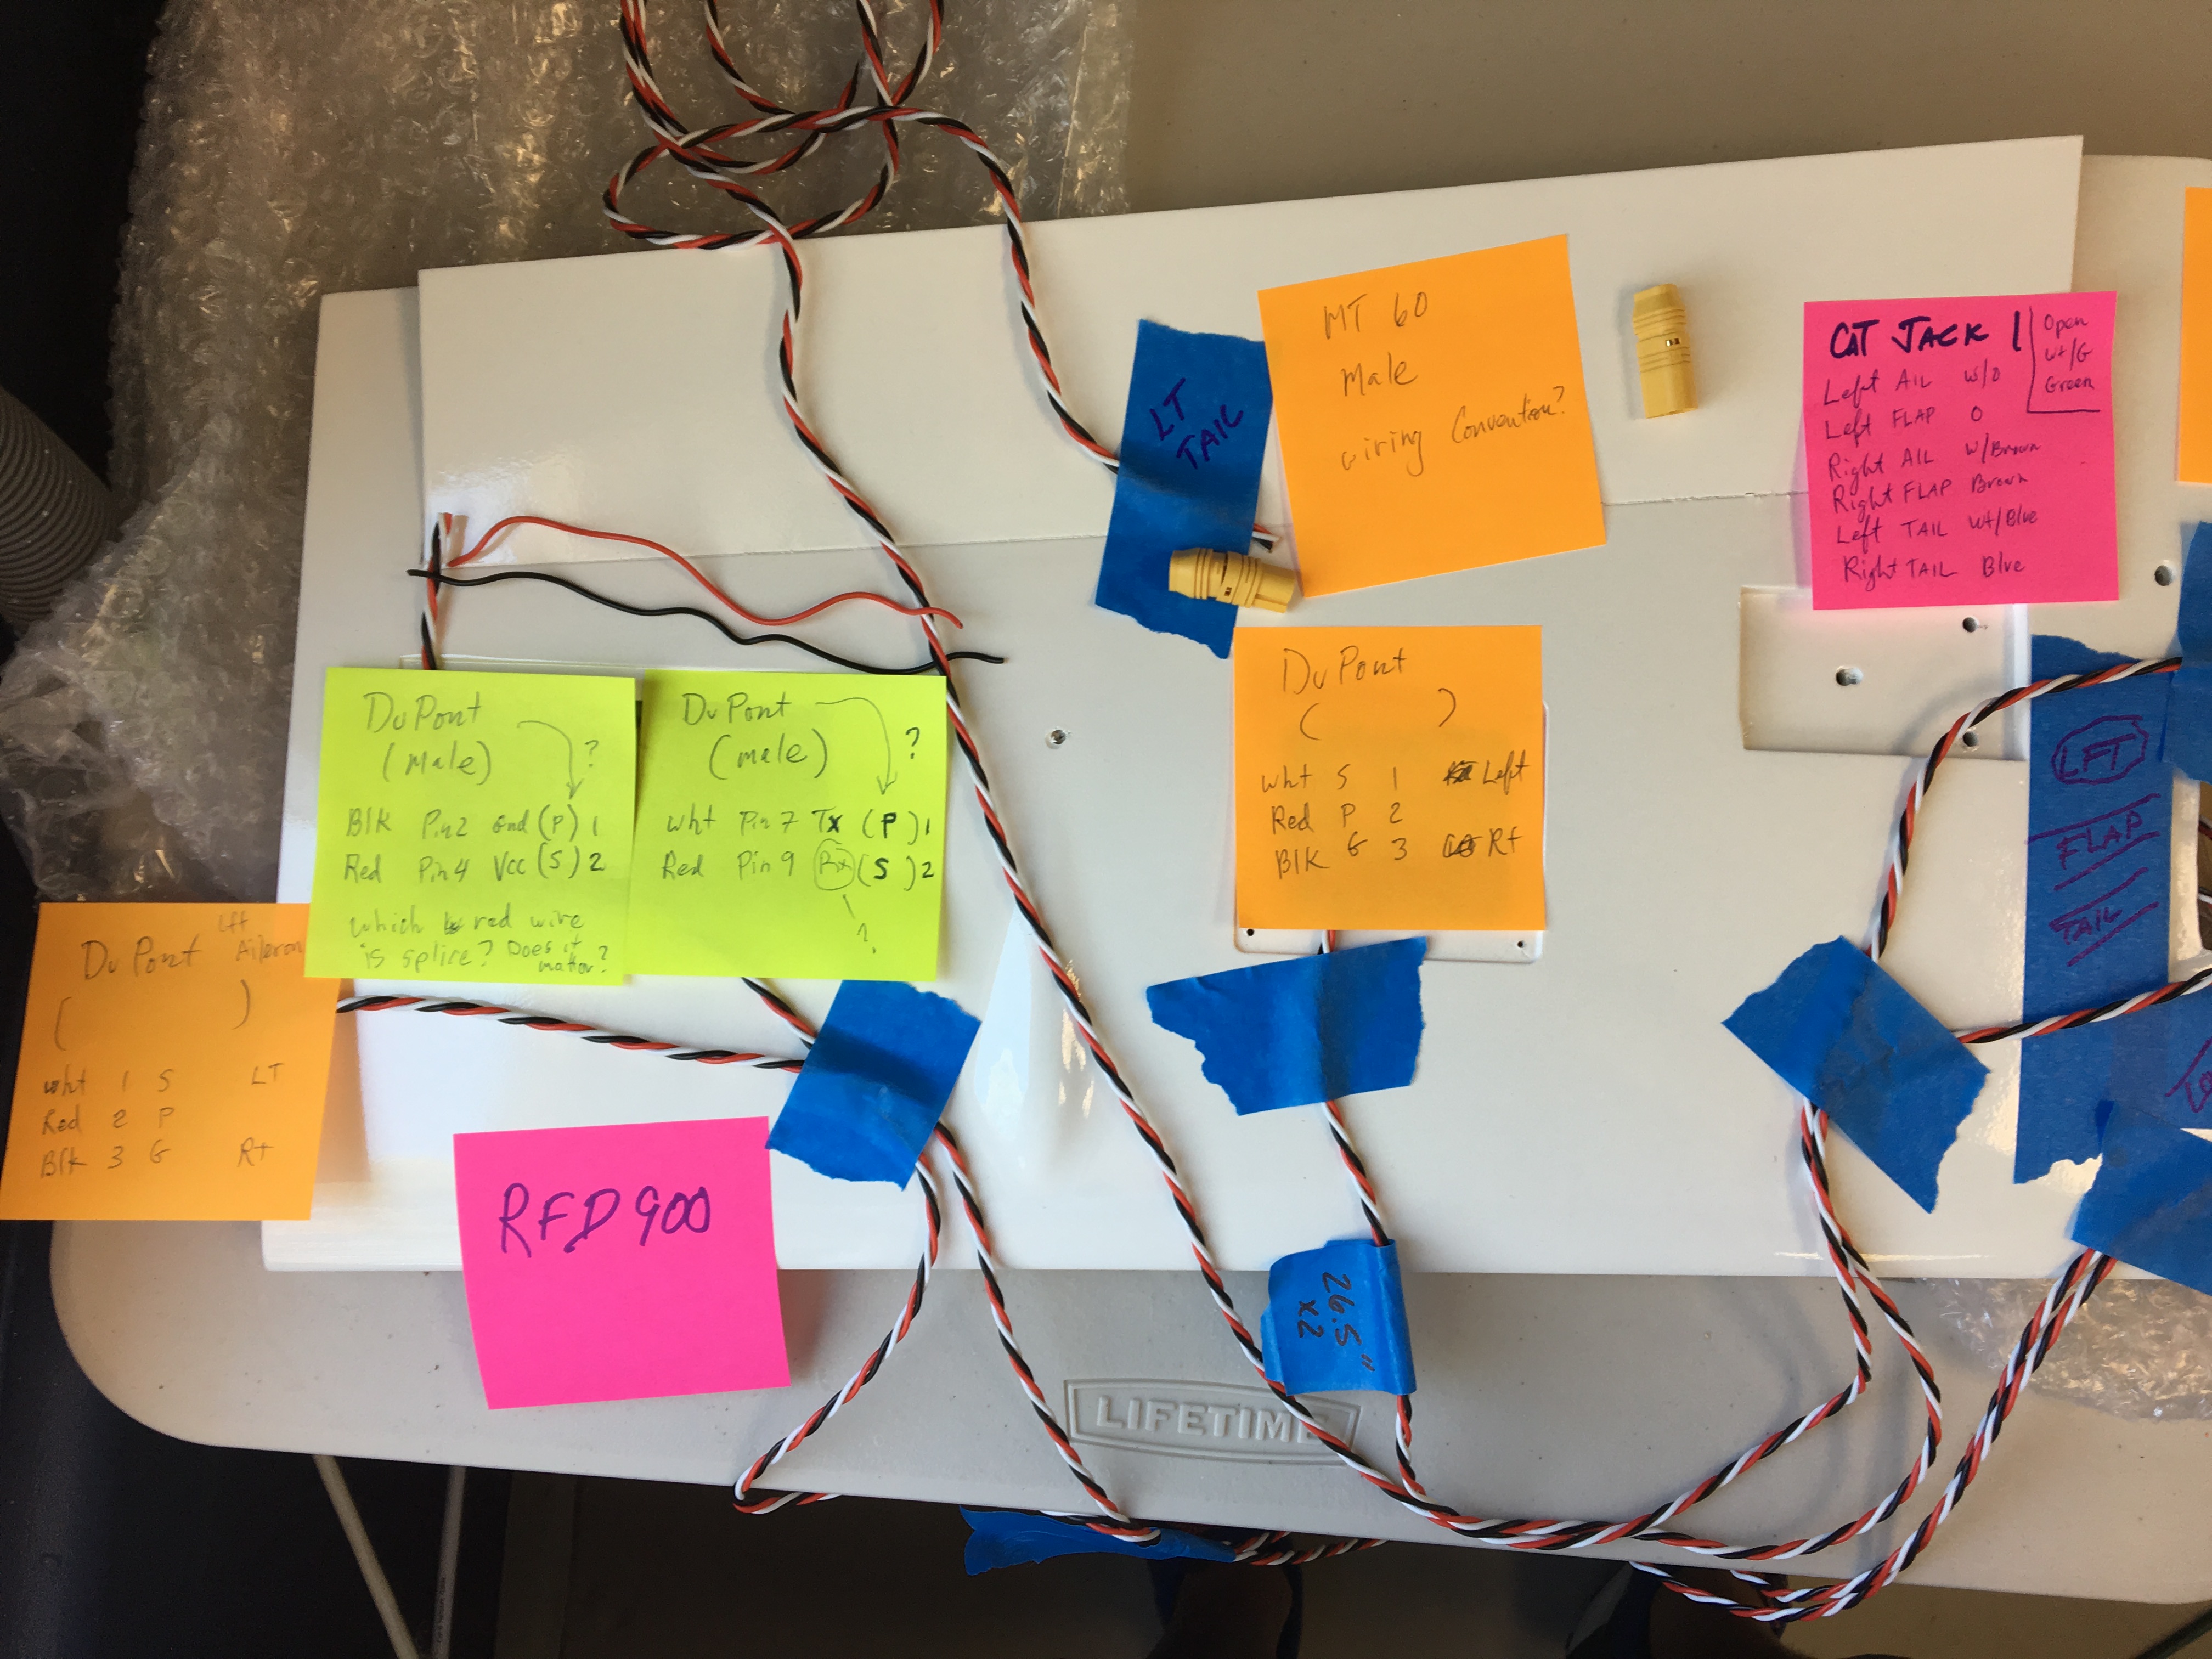 LT
TAIL
MT 60
Male
wiring Convention?
CAT JACK 1
Left AIL W/O
Left FLAP O
Right AIL W/Brown
Right FLAP Brown
Left TAIL WT/Blue
Right TAIL Blue
Open
WT/G
Green
DuPont
(Male) ?
Blk Pin2 Gnd (P) 1
Red Pin4 Vcc (S) 2
which red wire
is splice? Does it
matter?
DuPont
(male) ?
wht Pin 7 Tx (P) 1
Red Pin 9 Rx (S) 2
?
DuPont
( )
wht S 1 Left
Red P 2
Blk G 3 Rt
LFT
FLAP
TAIL
DuPont Lft Aileron
( )
wht 1 S LT
Red 2 P
Blk 3 G Rt
RFD900
26.5"
x2
LIFETIME